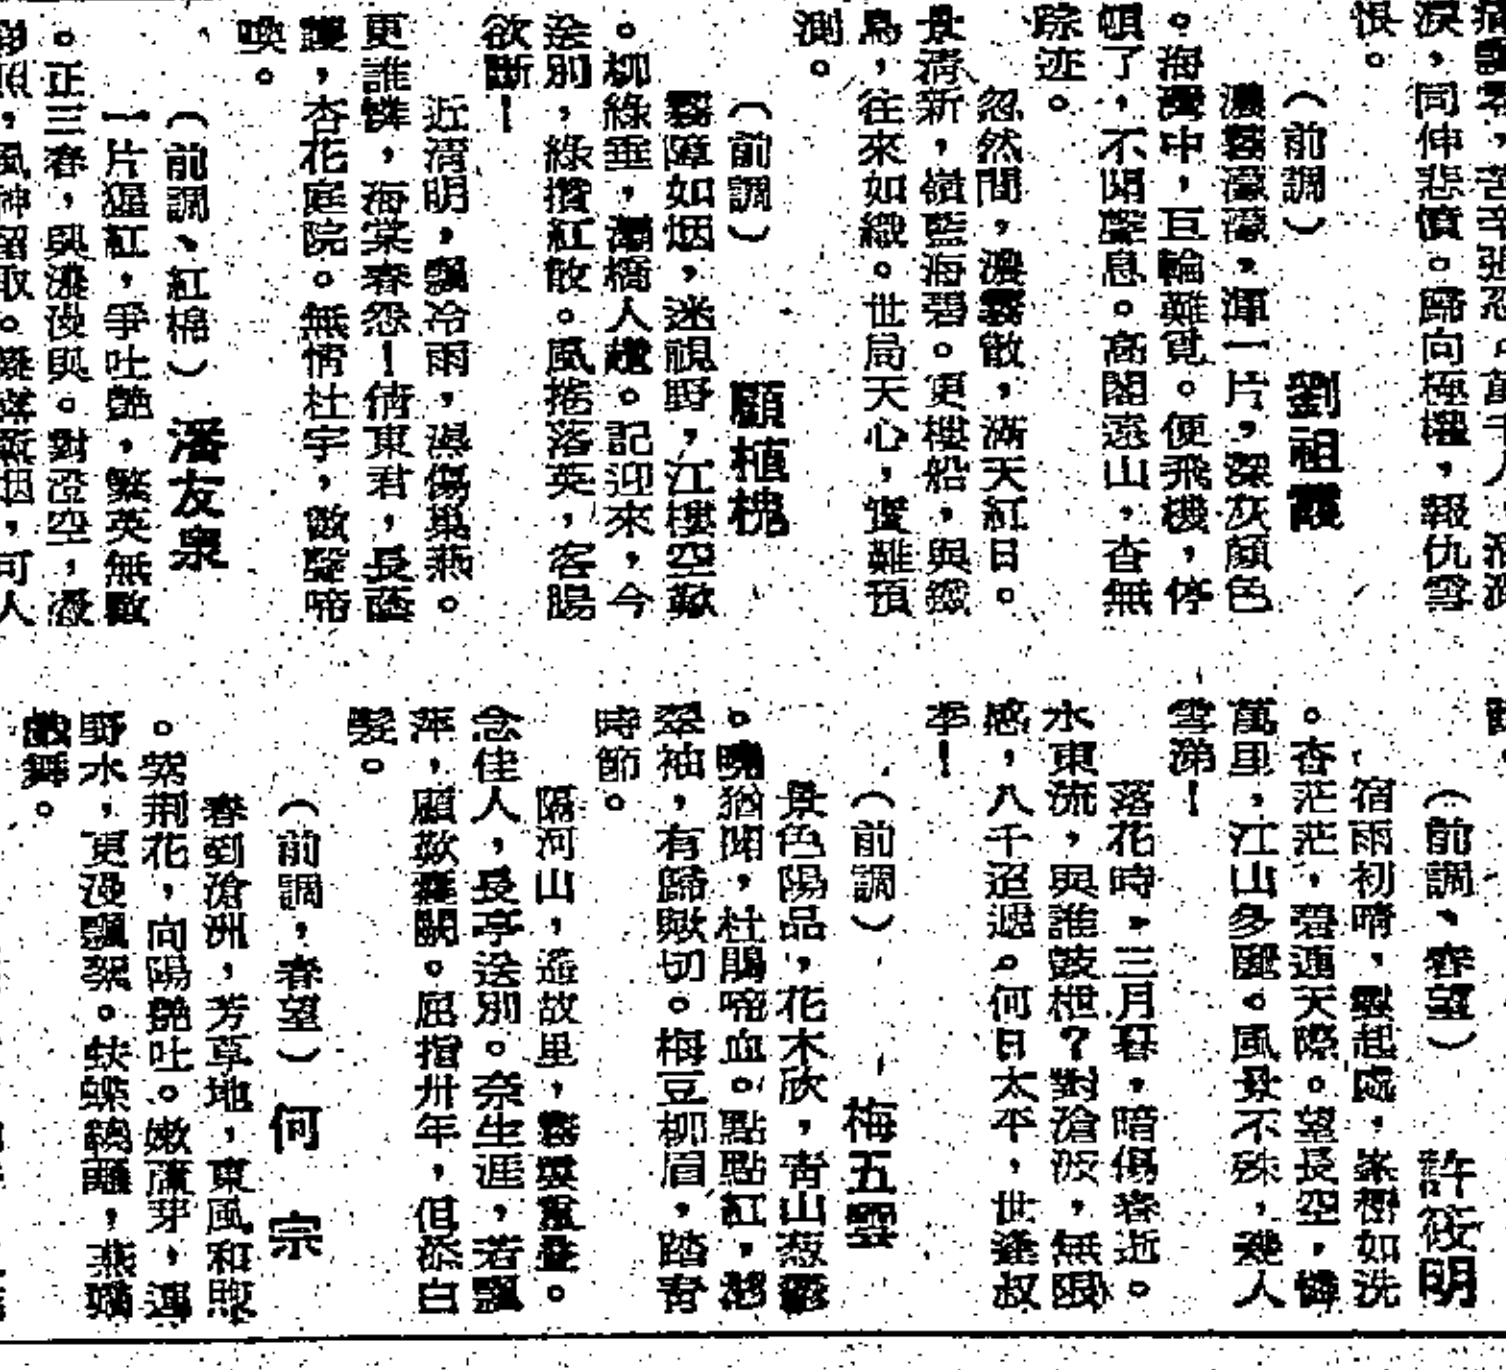 淚，同伸悲憤。歸向極權，報仇雪
恨。
（前調）　劉祖霞
濃霧濛濛，渾一片，深灰顏色
。海灣中，巨輪難覓。便飛機，停
頓了，不聞聲息。高閣遠山，杳無
踪迹。
忽然間，濃霧散，滿天紅日。
景清新，嶺藍海碧。更樓船，與鐵
鳥，往來如織。世局天心，實難預
測。
（前調）　顧植槐
霧障如烟，迷視野，江樓空歎
。柳綠垂，灞橋人遠。記迎來，今
送別，綠攢紅散。風捲落英，客腸
欲斷！
近清明，飄冷雨，濕傷巢燕。
更誰憐，海棠春怨！倩東君，長蔭
護，杏花庭院。無情杜宇，數聲啼
喚。
（前調、紅棉）　潘友泉
一片猩紅，爭吐艷，繁英無數
。正三春，興濃漫與。對澄空，
照，風神留取。烟，可人
（前調、春望）　許筱明
宿雨初晴，雲起處，峯巒如洗
。杳茫茫，碧連天際。望長空，憐
萬里，江山多麗。風景不殊，幾人
雪涕！
落花時，三月暮，暗傷春逝。
水東流，與誰鼓枻？對滄波，無限
感，八千迢遞。何日太平，世逢叔
季！
（前調）　梅五雲
景色陽品，花木欣，青山葱鬱
。曉猶聞，杜鵑啼血。點點紅，愁
翠袖，有歸歟切。梅豆柳眉，踏青
時節。
隔河山，遙故里，雲重疊。
念佳人，長亭送別。奈生涯，若飄
萍，願歎睽闊。屈指卅年，但添白
髮。
（前調，春望）　何　宗
春到滄洲，芳草地，東風和煦
。紫荆花，向陽艷吐。嫩蘆芽，連
野水，更漫飄絮。蛱蝶翩躚，燕鶯
舞。